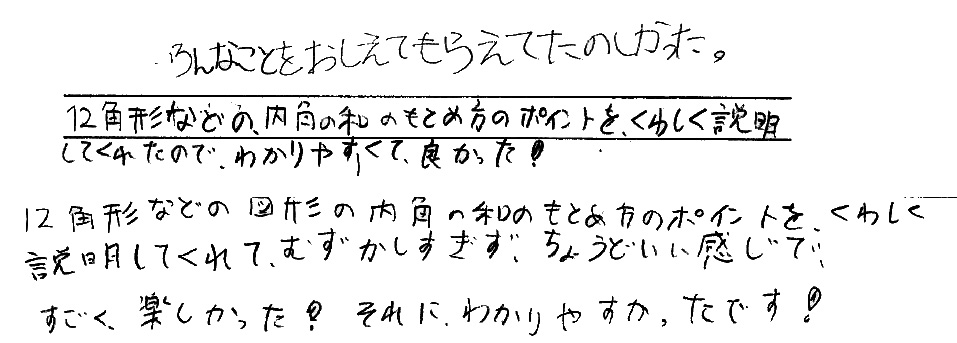 ろんなことをおしえてもらえてたのしかった。
12角形などの、内角の和のもとめ方のポイントを、くわしく説明
してくれたので、わかりやすくて、良かった!
12角形などの図形の内角の和のもとめ方のポイントを、くわしく
説明してくれて、むずかしすぎず、ちょうどいい感じで、
すごく、楽しかった! それに、わかりやすかったです!